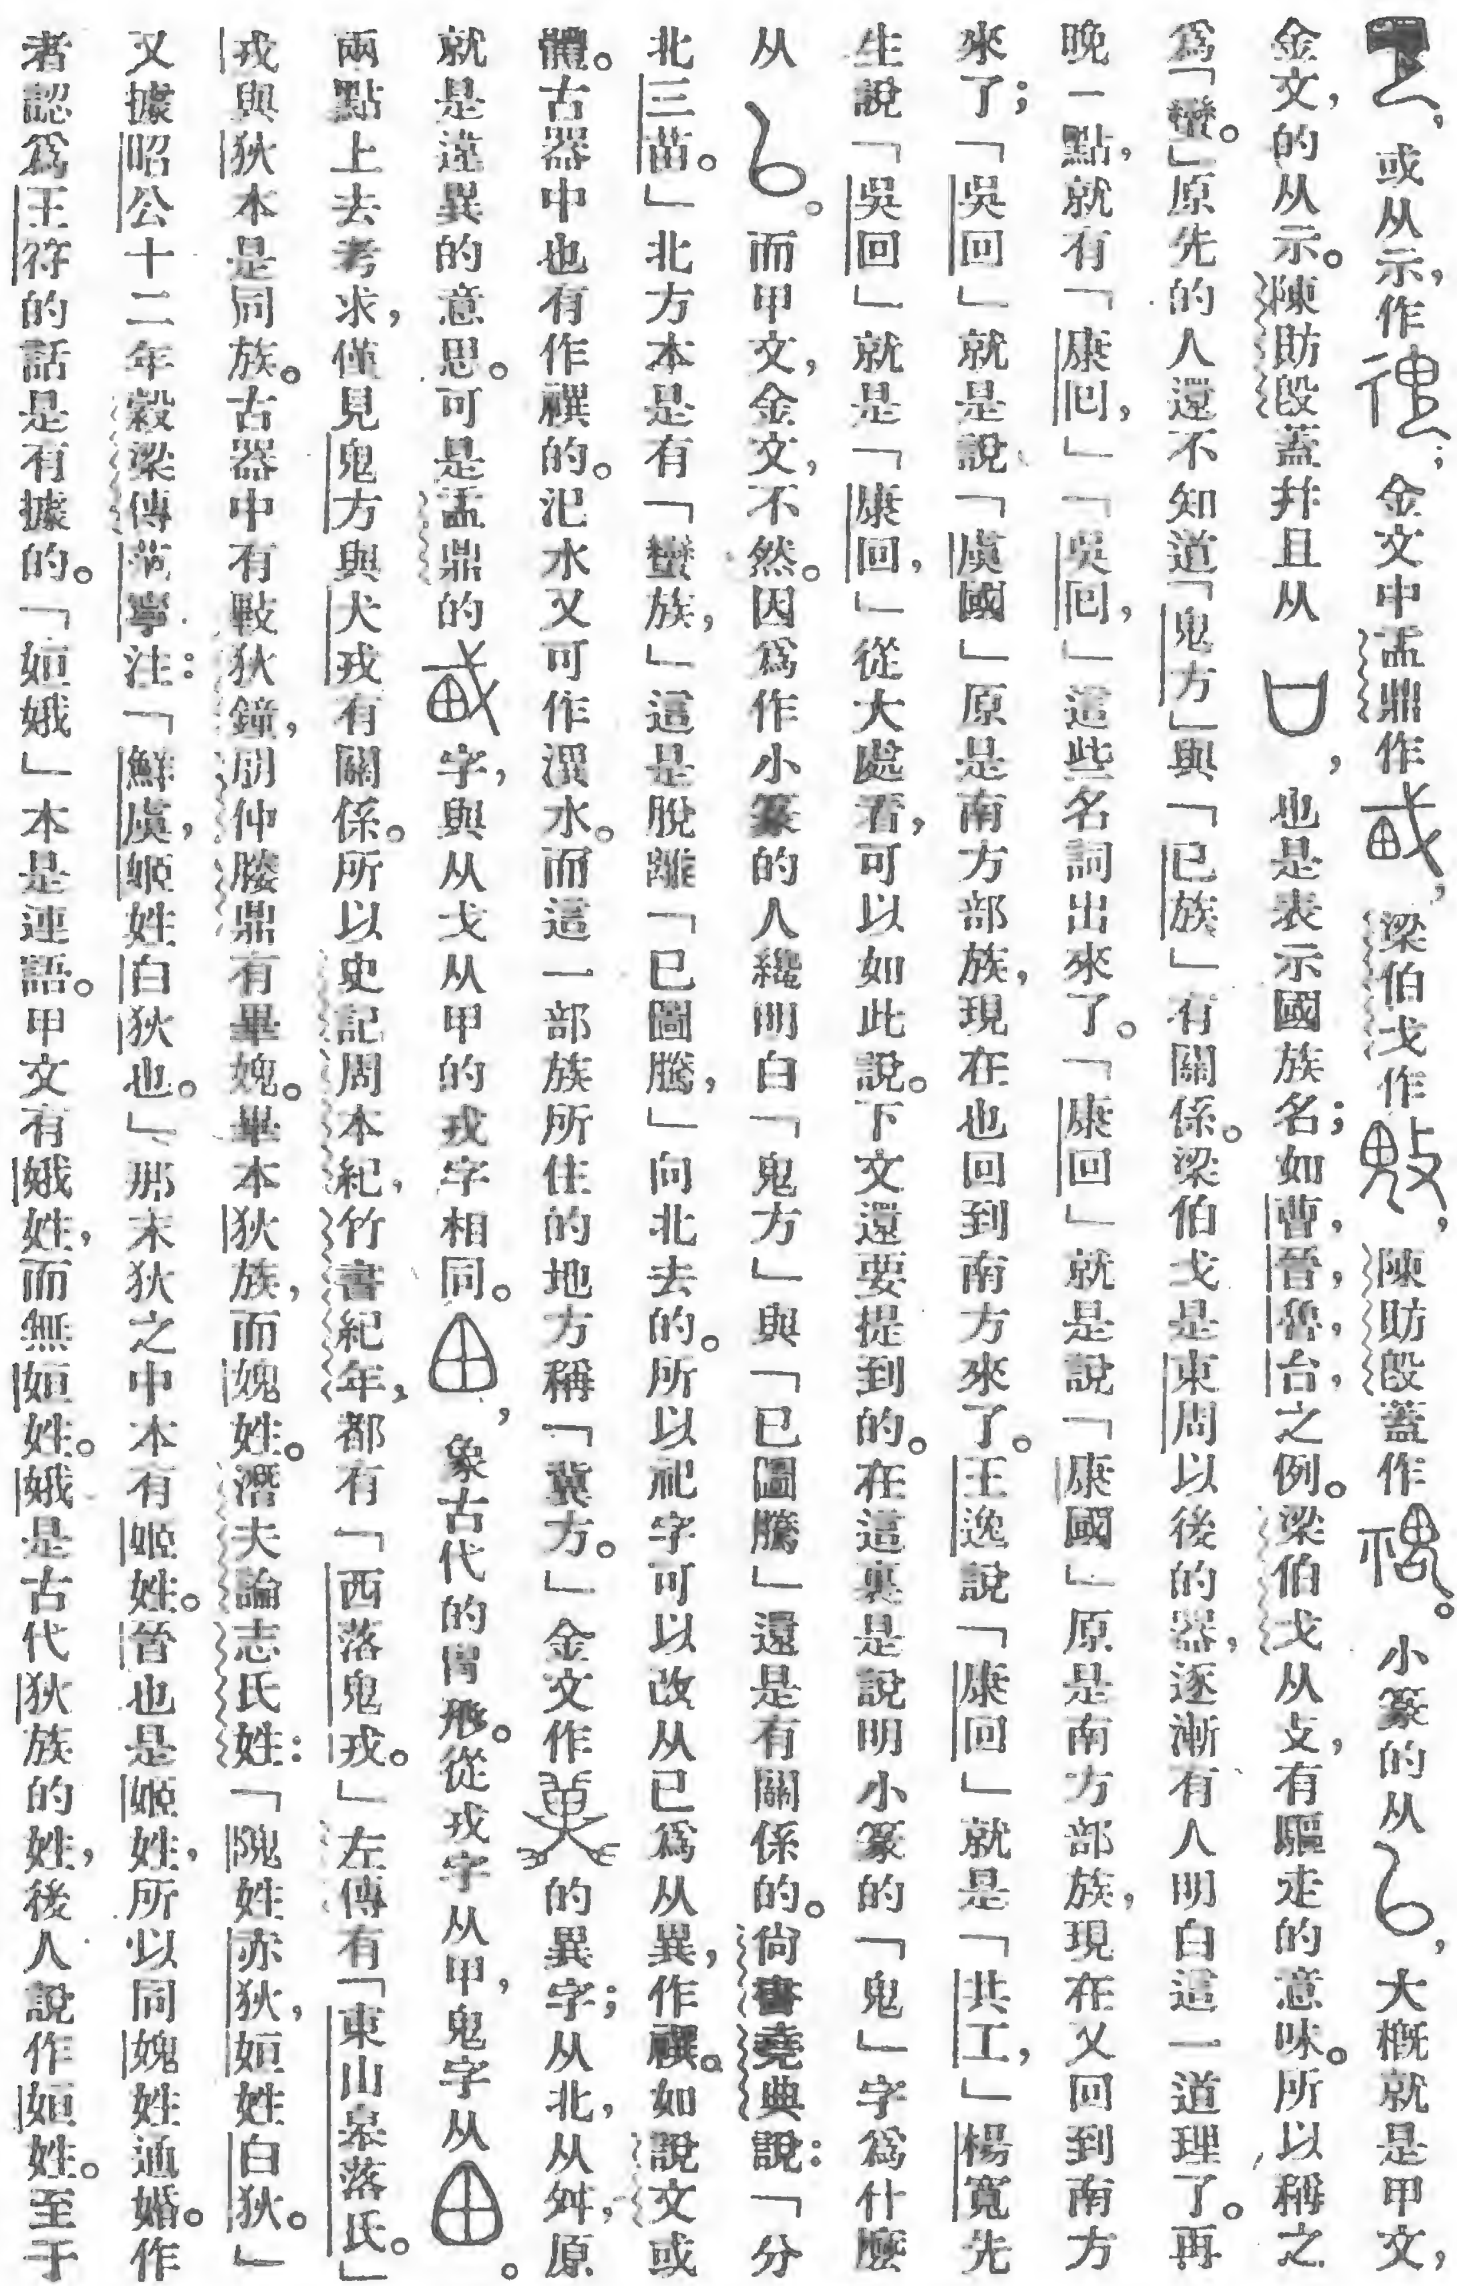 ，或从示，作；金文中盂鼎作，梁伯戈作，陳肪𣪘蓋作。小篆的从，大概就是甲文，
金文，的从示。陳肪𣪘蓋幷且从，也是表示國族名；如曹，晉，魯，台，之例。梁伯戈从攴，有驅走的意味。所以稱之
爲「蠻。」原先的人還不知道「鬼方」與「巳族」有關係。梁伯戈是東周以後的器，逐漸有人明白這一道理了。再
晚一點，就有「康回，」「吳回，」這些名詞出來了。「康回」就是說「康國」原是南方部族，現在又回到南方
來了；「吳回」就是說「虞國」原是南方部族，現在也回到南方來了。王逸說「康回」就是「共工，」楊寬先
生說「吳回」就是「康回，」從大處看，可以如此說。下文還要提到的。在這裏是說明小篆的「鬼」字爲什麼
从。而甲文，金文，不然。因爲作小篆的人纔明白「鬼方」與「巳圖騰」還是有關係的。尙書堯典說：「分
北三苗。」北方本是有「蠻族，」這是脫離「巳圖騰，」向北去的。所以祀字可以改从巳爲从異，作禩。如說文或
體。古器中也有作禩的。汜水又可作潩水。而這一部族所住的地方稱「冀方。」金文作的異字；从北，从舛，原
就是遠異的意思。可是盂鼎的字，與从戈从甲的戎字相同。，象古代的胄形。從戎字从甲，鬼字从。
兩點上去考求，僅見鬼方與犬戎有關係。所以史記周本紀，竹書紀年，都有「西落鬼戎。」左傳有「東山皋落氏。」
戎與狄本是同族。古器中有𢾭狄鐘，朋仲媵鼎有畢媿。畢本狄族，而媿姓。潛夫論志氏姓：「隗姓赤狄，姮姓白狄。」
又據昭公十二年穀梁傳范寧注：「鮮虞，姬姓白狄也。」那末狄之中本有姬姓。晉也是姬姓，所以同媿姓通婚。作
者認爲王符的話是有據的。「姮娥」本是連語。甲文有娥姓，而無姮姓。娥是古代狄族的姓，後人說作姮姓。至于